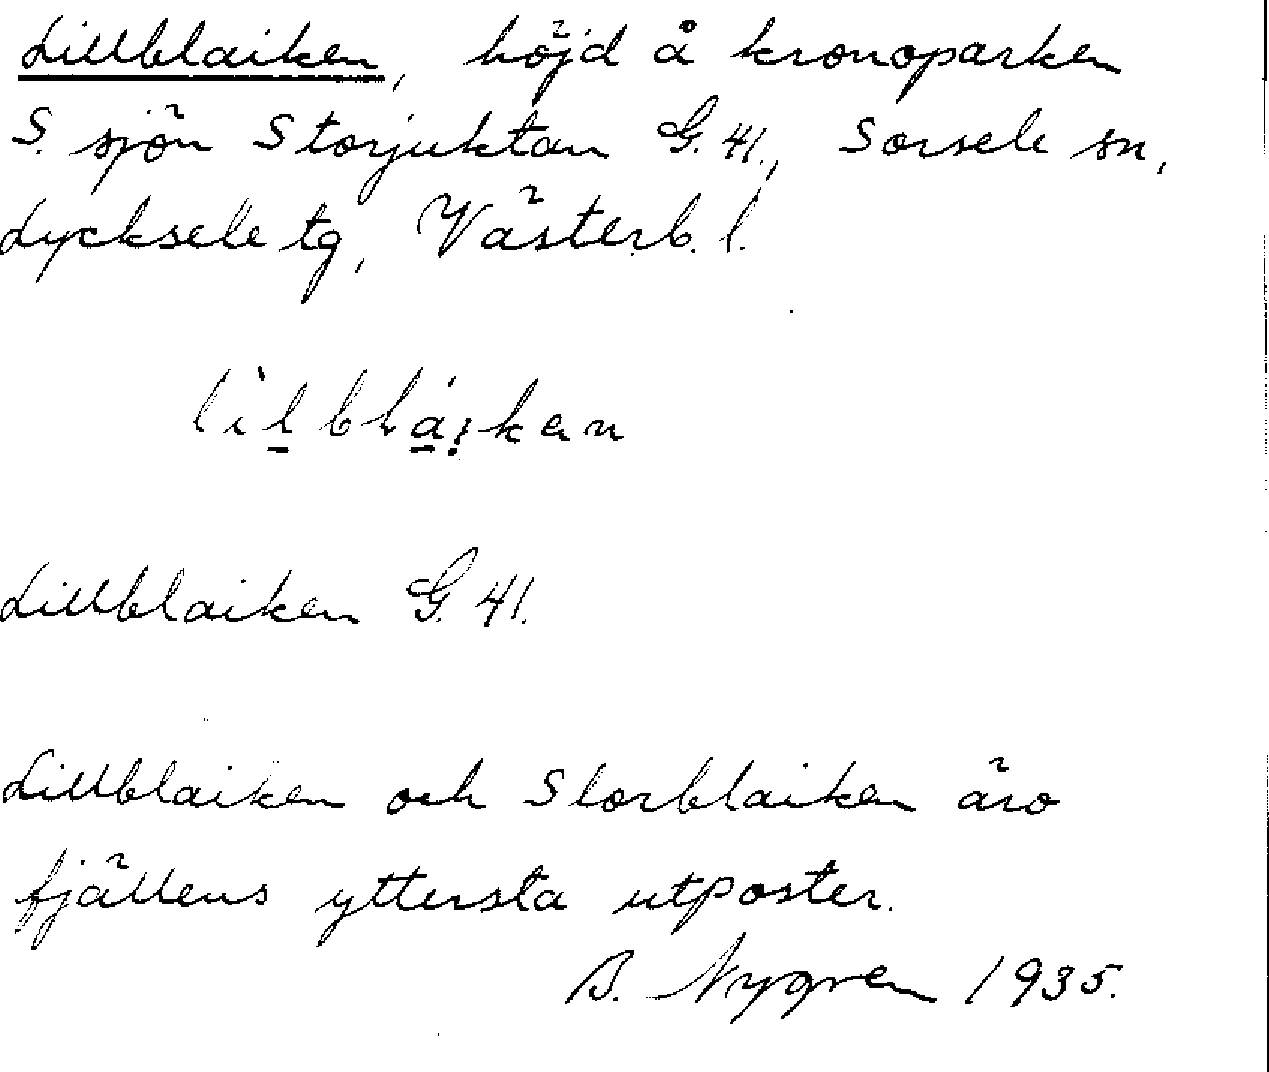 Lillblaiken, höjd å kronoparken
S. sjön Storjuktan G. 41., Sorsele sn,
Lycksele tg, Västerb. l.
lìlblái̭kan
Lillblaiken G. 41.
Lillblaiken och Storblaiken äro
fjällens yttersta utposter.
B. Nygren 1935.